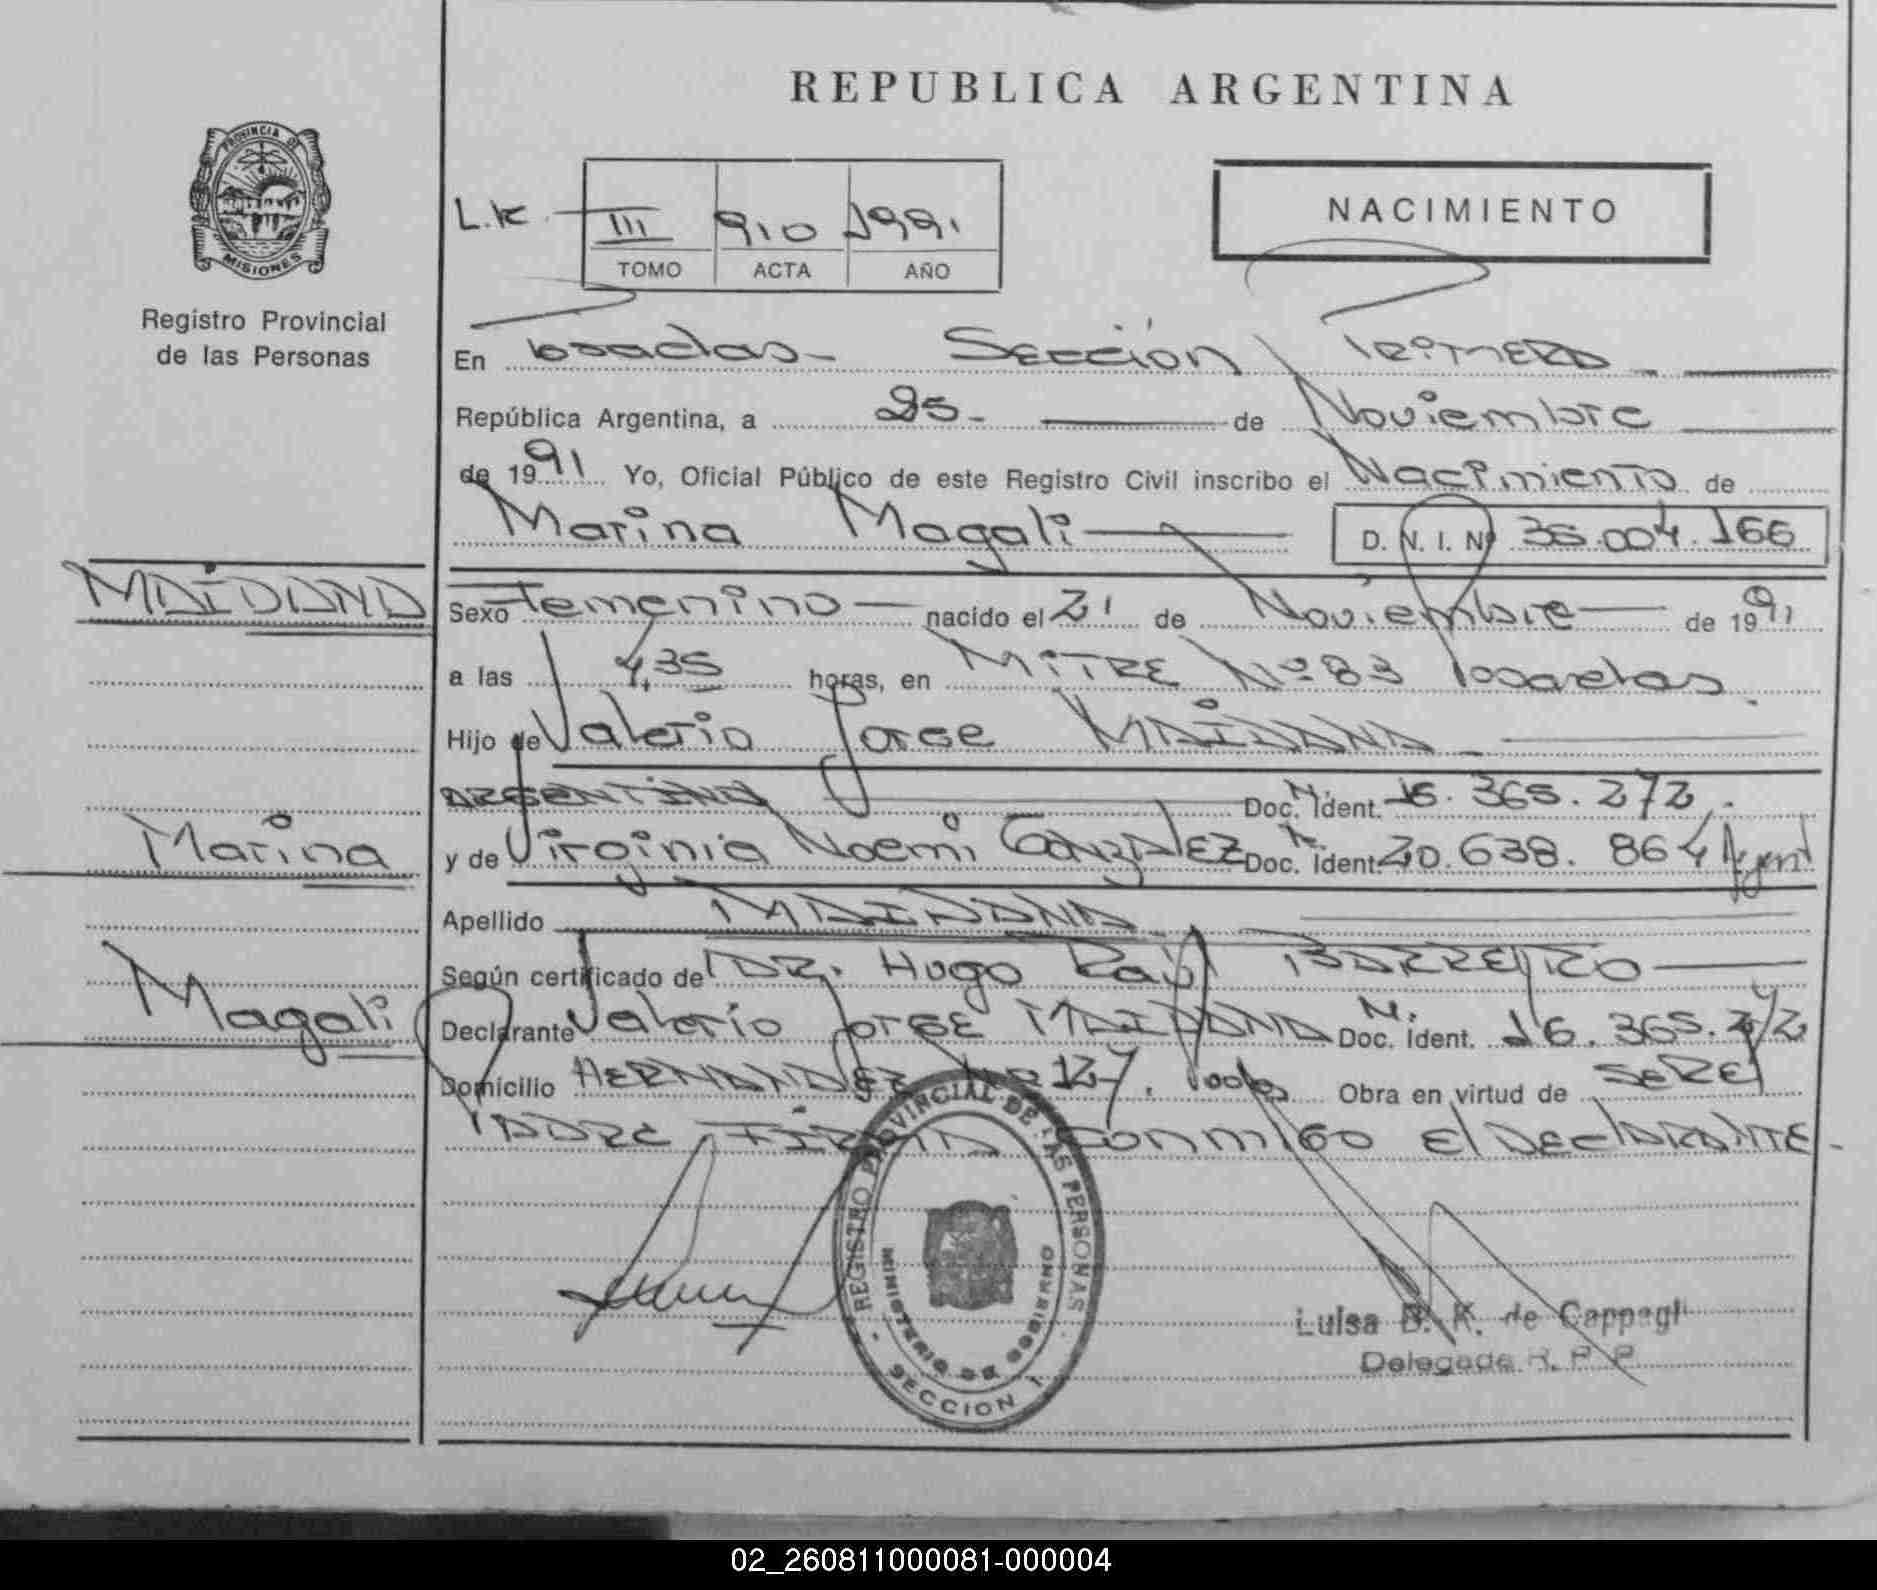 REPUBLICA ARGENTINA
PROVINCIA DE
MISIONES
Registro Provincial
de las Personas
L.K III 910 1991
TOMO ACTA AÑO
NACIMIENTO
En Posadas - Sección Primera
República Argentina, a 25 - de Noviembre
de 1991 Yo, Oficial Público de este Registro Civil inscribo el Nacimiento de
Marina Magali D. N. I. Nº 36.004.166
MAIDANA
Sexo Femenino nacido el 21 de Noviembre de 1991
a las 4,35 horas, en MITRE Nº 83 Posadas.
Hijo de Valerio Jorge MAIDANA
ARGENTINA Doc. Ident. 16.365.272.
Marina
y de Virginia Noemi GonzALEZ Doc. Ident. 20.638.864 Argent
Apellido MAIDANA
Magali
Según certificado de DR. Hugo Raúl BARREYRO
Declarante Valerio Jorge MAIDANA M. Doc. Ident. 16.365.272
Domicilio HERNANDEZ Nº 127. Pdas Obra en virtud de SERE
PADRE FIRMA CONMIGO El DEClARANTE -
REGISTRO PROVINCIAL DE LAS PERSONAS
MINISTERIO DE GOBIERNO
SECCION 1
Luisa B. K. de Cappagli
Delegada R. P. P.
02_260811000081-000004